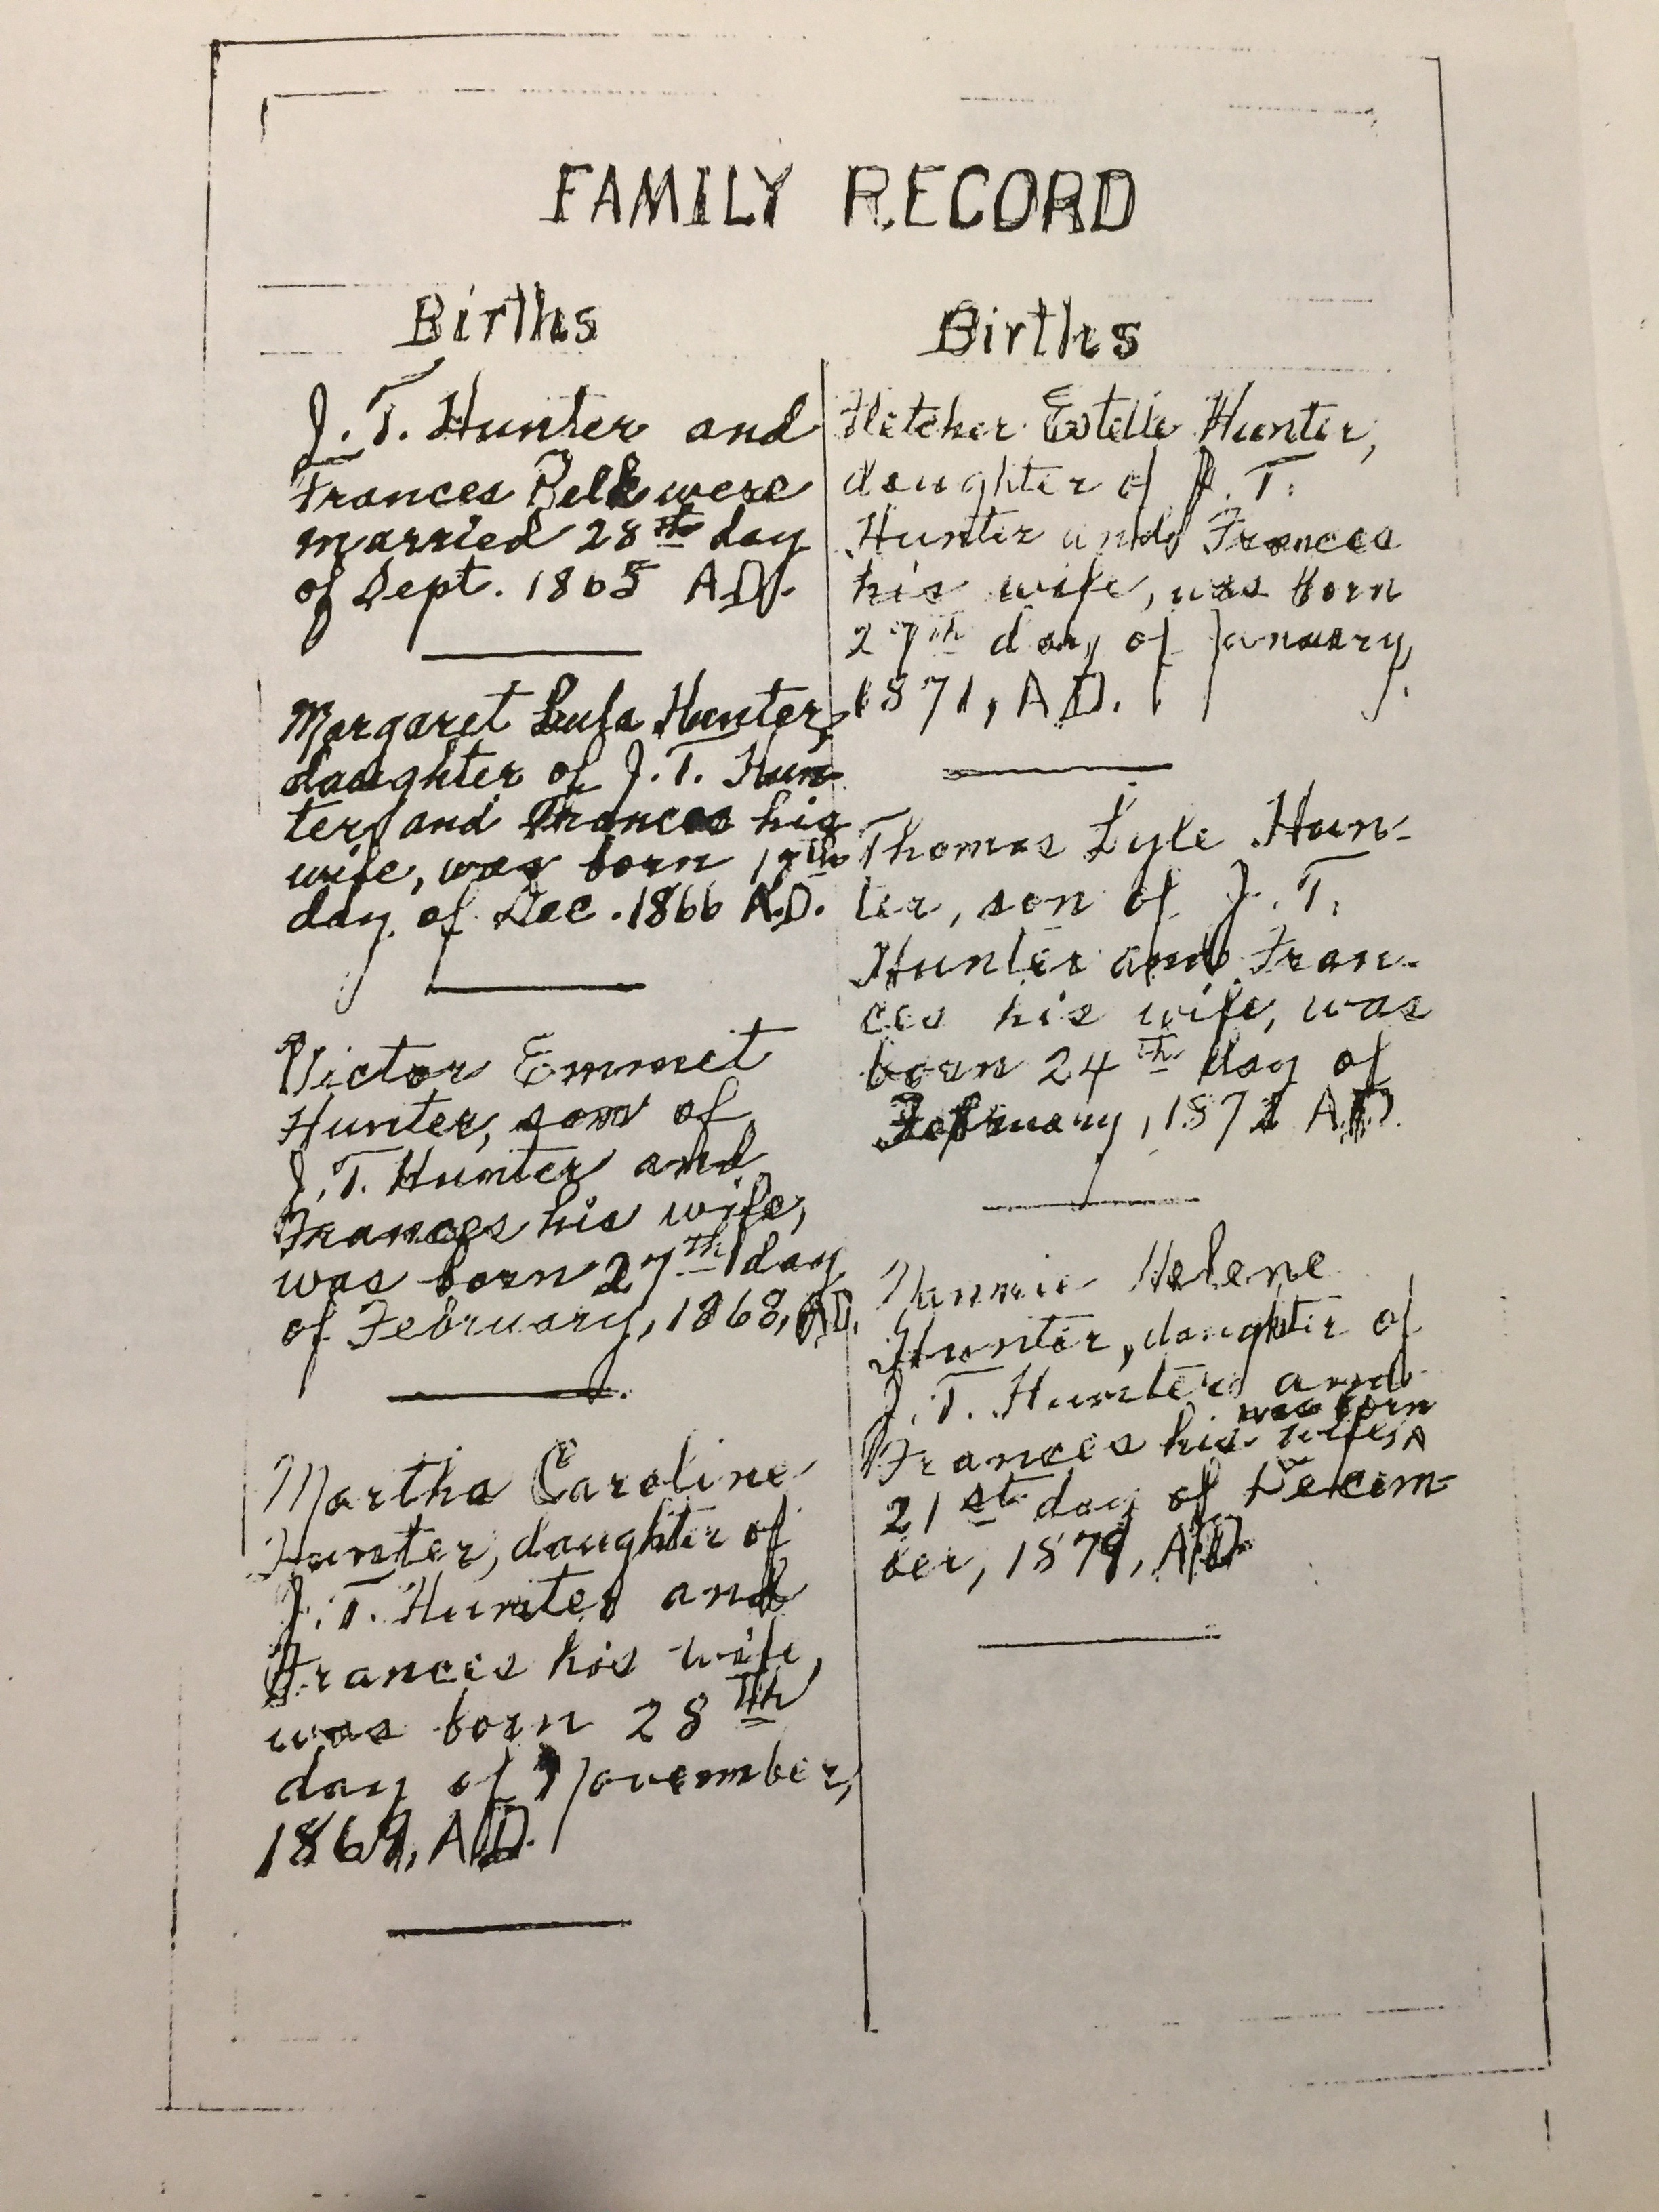 FAMILY RECORD
Births
J. T. Hunter and
Frances Belk were
married 28th day
of Sept. 1865 A.D.
Margaret Lula Hunter,
daughter of J. T. Hun-
ter and Frances his
wife, was born
day of Dec. 1866 A.D.
Victor Emmet
Hunter, son of
J. T. Hunter and
Frances his wife,
was born 27th day
of February, 1868, A.D.
Martha Caroline
Hunter, daughter of
J. T. Hunter and
Frances his wife,
was born 28th
day of November,
1869, A.D.
Births
Fletcher Estelle Hunter,
daughter of J. T.
Hunter and Frances
his wife, was born
27th day of January,
1871, A.D.
Thomas Lyle Hun-
ter, son of J. T.
Hunter and Fran-
ces his wife, was
born 24th day of
February, A.D.
Nannie Helene
Hunter, daughter of
J. T. Hunter and
was born
Frances his wife,
21st day of Decem-
ber, 1879, A.D.